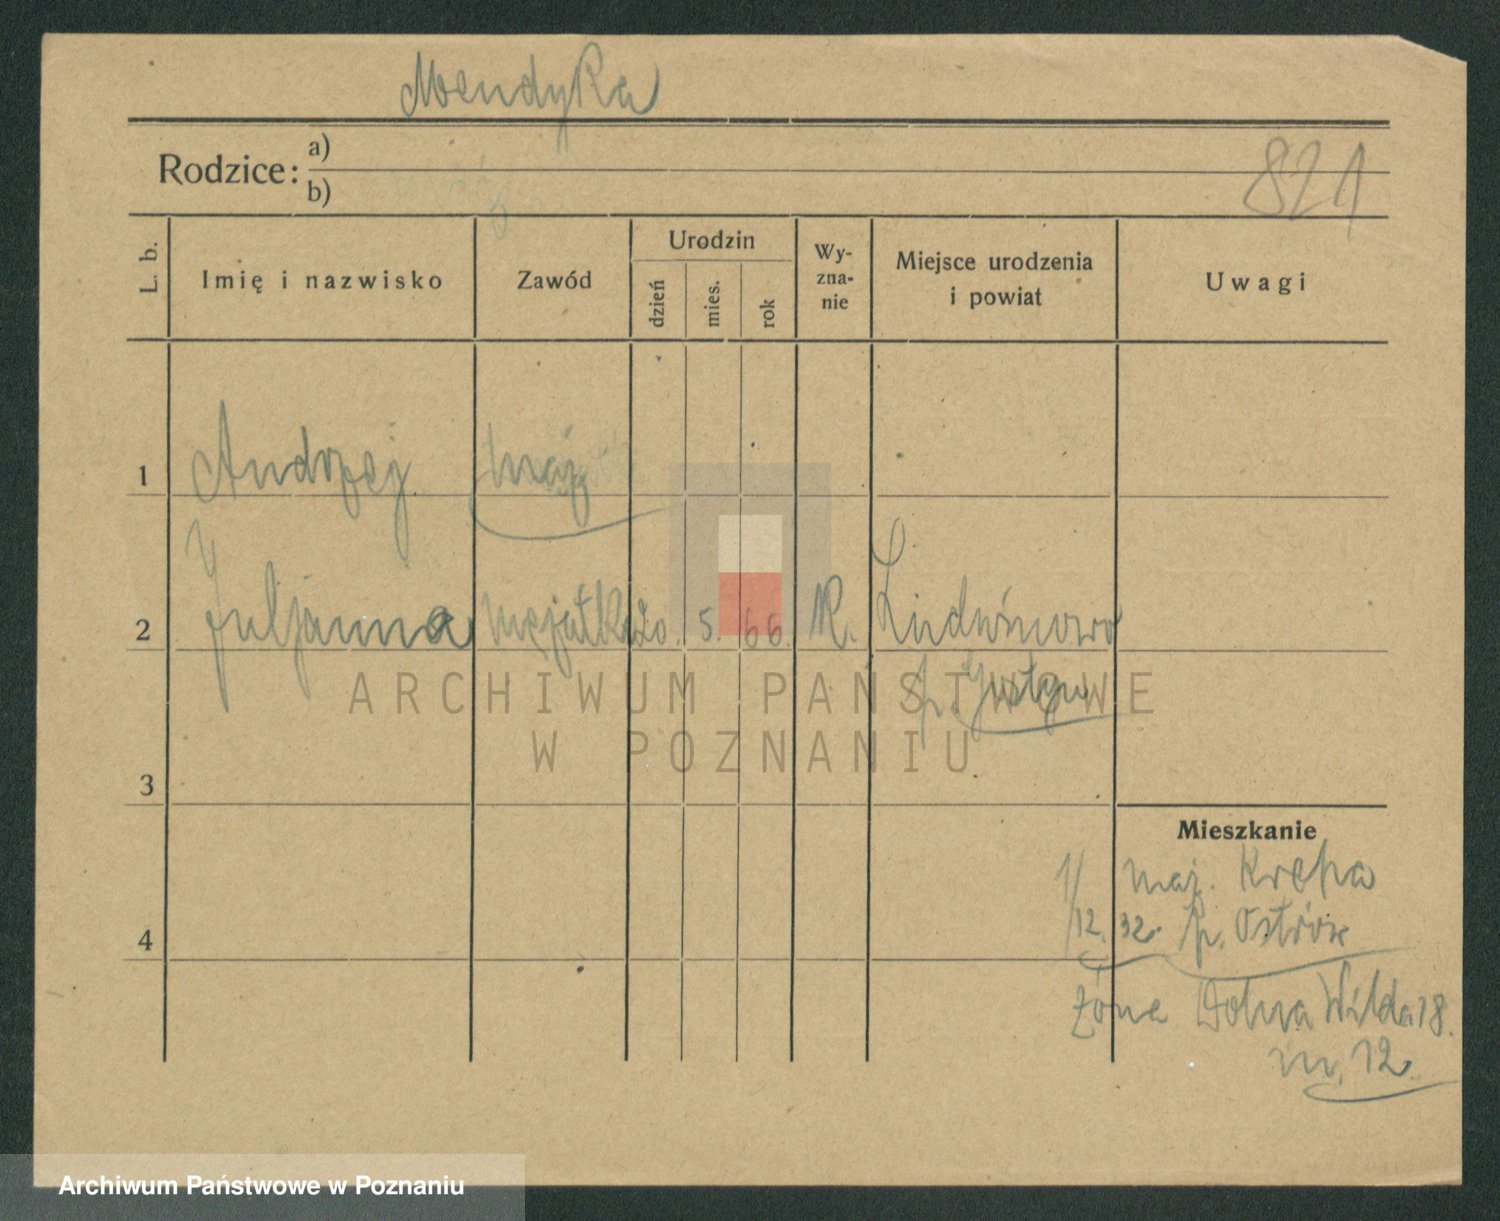 Mendyka
Rodzice: a)
b)
821
L. b.
Imię i nazwisko
Zawód
Urodzin
dzień
mies.
rok
Wy-
zna-
nie
Miejsce urodzenia
i powiat
Uwagi
1 Andrzej mąż
2 Juljanna 20. 5. 66. R. Ludwinowo
p. Gostyn
3
4
Mieszkanie
1/12. 32. maj. Krępa
p. Ostrów
Dolna Wilda 18.
m. 12.
ARCHIWUM PAŃSTWOWE
W POZNANIU
Archiwum Państwowe w Poznaniu